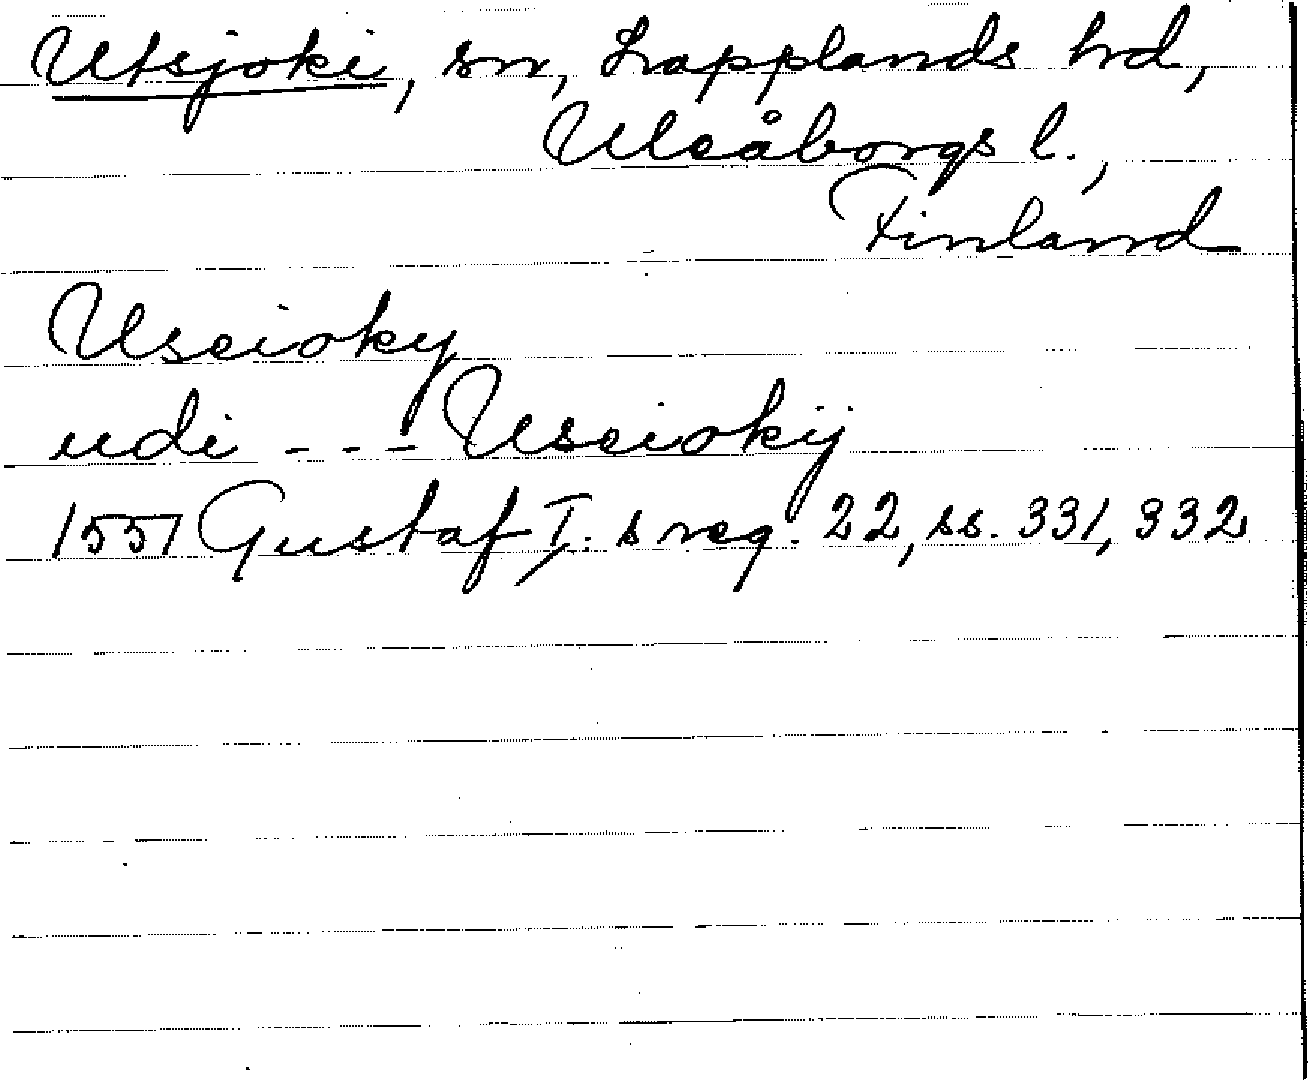 Utsjoki, sn, Lapplands hd,
Uleåborgs l.,
Finland
Useioky
udi --- Useiokij
1551 Gustaf I.s reg. 22, ss. 331, 332